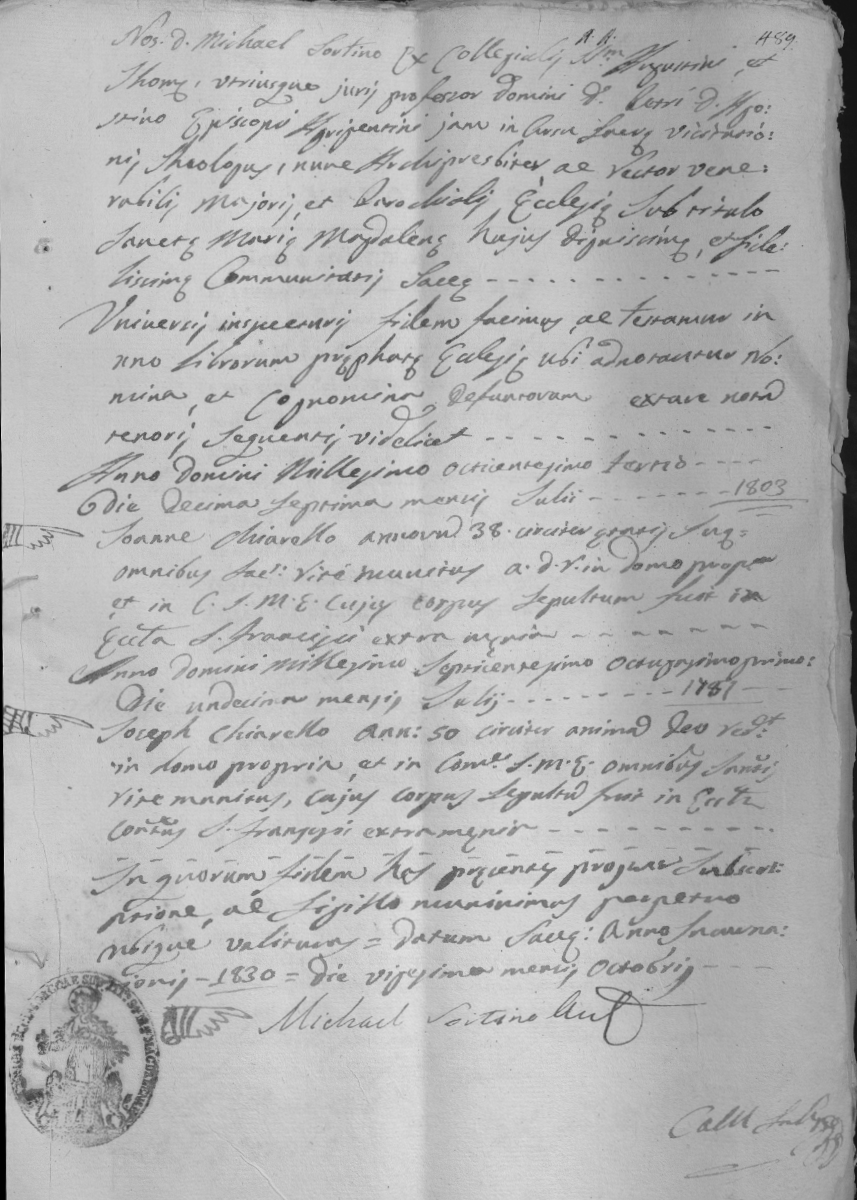 489
Nos. d. Michael Sortino Ex Collegialis A. A. Augustini, et
Thomę, utriusque juris professor domini d. Petri d. Ago:
stino Episcopi Agrigentini jam in Sacrę visitatio:
nis Theologus, nunc Archipresbiter, ac Rector vene:
rabilis Majoris, et Parochialis Ecclesię Sub titulo
Sanctę Marię Magdalenę hujus dignissimę, et fide:
lissimę Communitatis Saccę
Universis inspecturis fidem facimus, ac testamur in
uno librorum pręphatę Ecclesię ubi adnotantur No:
mina, et Cognomina defuntorum extare notā
tenoris sequentis videlicet
Anno Domini Millesimo octicentesimo tertio
die decima septima mensis Julii 1803
Joanne Chiarello annorū 38. circiter ętatis suę
omnibus Sac: vitę munitus a. d. r. in domo propr
et in C. S. M. E. cujus corpus sepultum fuit in
Eccta S. Francisci extra męnia
Anno domini millesimo septicentesimo octuagesimo primo:
die undecima mensis Julij 1781
Joseph Chiarello ann: 50 circiter animā deo red.t
in domo propria, et in Com.e S. M. E. omnibus
rite munitus, cujus corpus sepultū fuit in Eccta
S. Francisci extra męnia
In quorum fidem has pręsentes propria Subscri:
ptione, ac Sigillo munivimus perpetuo
ubique valituras = datum Saccę: Anno Incarna:
tionis - 1830 = die vigesima mensis Octobris
Michael Sortino